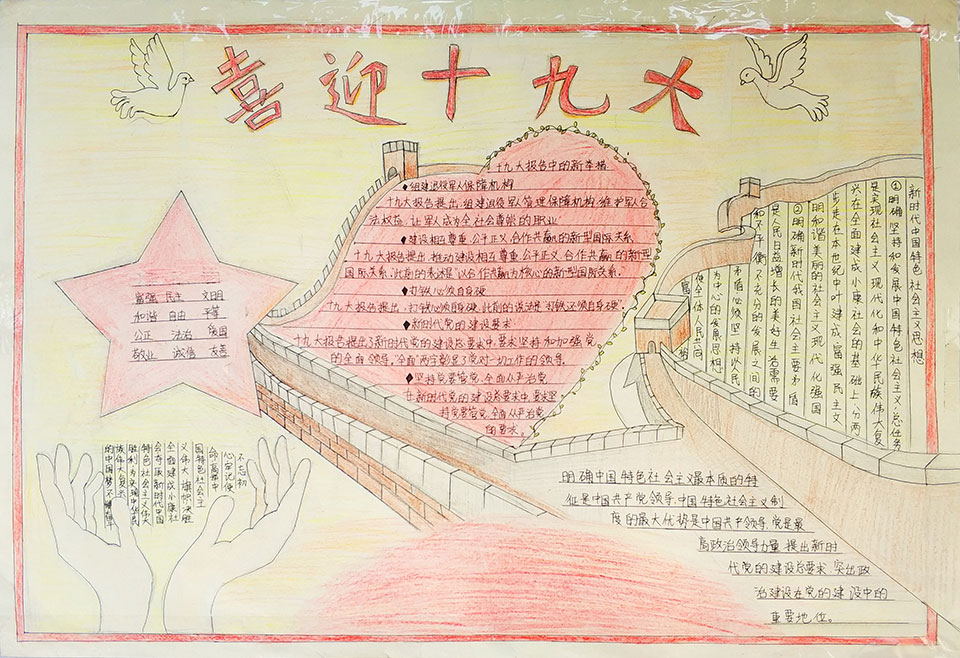 喜迎十九大
富强 民主 文明
和谐 自由 平等
公正 法治 爱国
敬业 诚信 友善
十九大报告中的新举措
♦组建退役军人保障机构
十九大报告提出,组建退役军人管理保障机构,维护军人合
法权益,让军人成为全社会尊崇的职业
♦建设相互尊重、公平正义、合作共赢的新型国际关系
十九大报告提出,推动建设相互尊重、公平正义、合作共赢的新型
国际关系,此前的表述是"以合作共赢为核心的新型国际关系。
♦打铁必须自身硬
十九大报告提出,打铁必须自身硬,此前的说法是"打铁还须自身硬"
♦新时代党的建设要求
十九大报告提出了新时代党的建设总要求,要求坚持和加强党
的全面领导,"全面"两字彰显了党对一切工作的领导
♦坚持党要管党、全面从严治党
在新时代党的建设总要求中,要求坚
持党要管党、全面从严治党
的要求。
新时代中国特色社会主义思想
①明确坚持和发展中国特色社会主义,总任务
是实现社会主义现代化和中华民族伟大复
兴,在全面建成小康社会的基础上,分两
步走在本世纪中叶建成富强民主文
明和谐美丽的社会主义现代化强国
②明确新时代我国社会主要矛盾
是人民日益增长的美好生活需要
和不平衡不充分的发展之间的
矛盾,必须坚持以人民
为中心的发展思想
使全体人民共同
富裕
不忘初
心,牢记使
命,高举中
国特色社会主
义伟大旗帜,决胜
全面建成小康社
会,夺取新时代中国
特色社会主义伟大
胜利,为实现中华民
族伟大复兴
的中国梦不懈奋斗
明确中国特色社会主义最本质的特
征是中国共产党领导,中国特色社会主义制
度的最大优势是中国共产党领导,党是最
高政治领导力量,提出新时
代党的建设总要求,突出政
治建设在党的建设中的
重要地位。